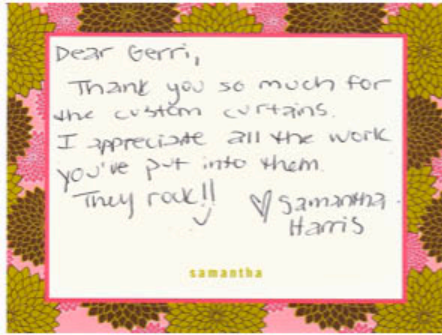 Dear Gerri,
Thank you so much for
the custom curtains.
I appreciate all the work
you've put into them.
They rock!!
♡ Samantha
Harris
samantha